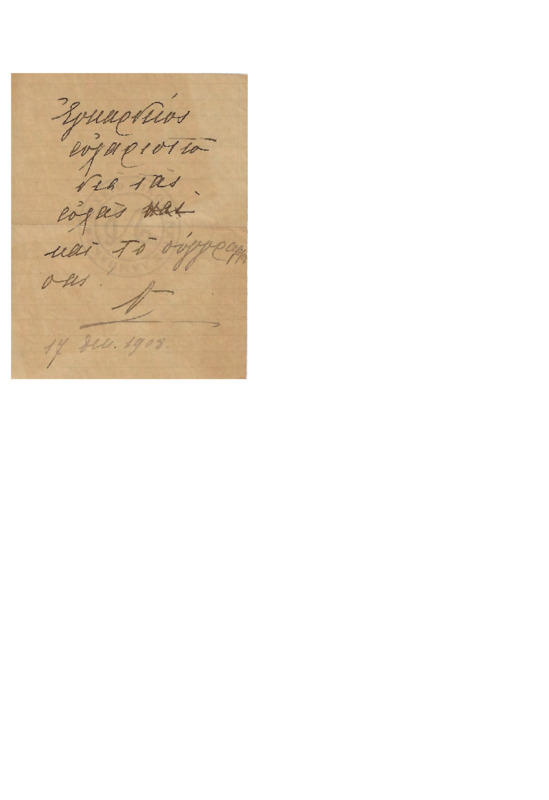 Ἐγκαρδίως
εὐχαριστῶ
διὰ τὰς
εὐχὰς καὶ
καὶ τὸ σύγγραμμα
σας.
Γ
17 Δεκ. 1908